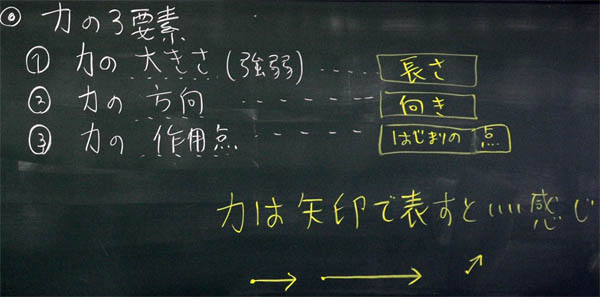 ◎ 力の3要素
① 力の 大きさ (強弱) ---- 長さ
② 力の 方向 ------ 向き
③ 力の 作用点 ----- はじまりの 点
力は矢印で表すといい感じ